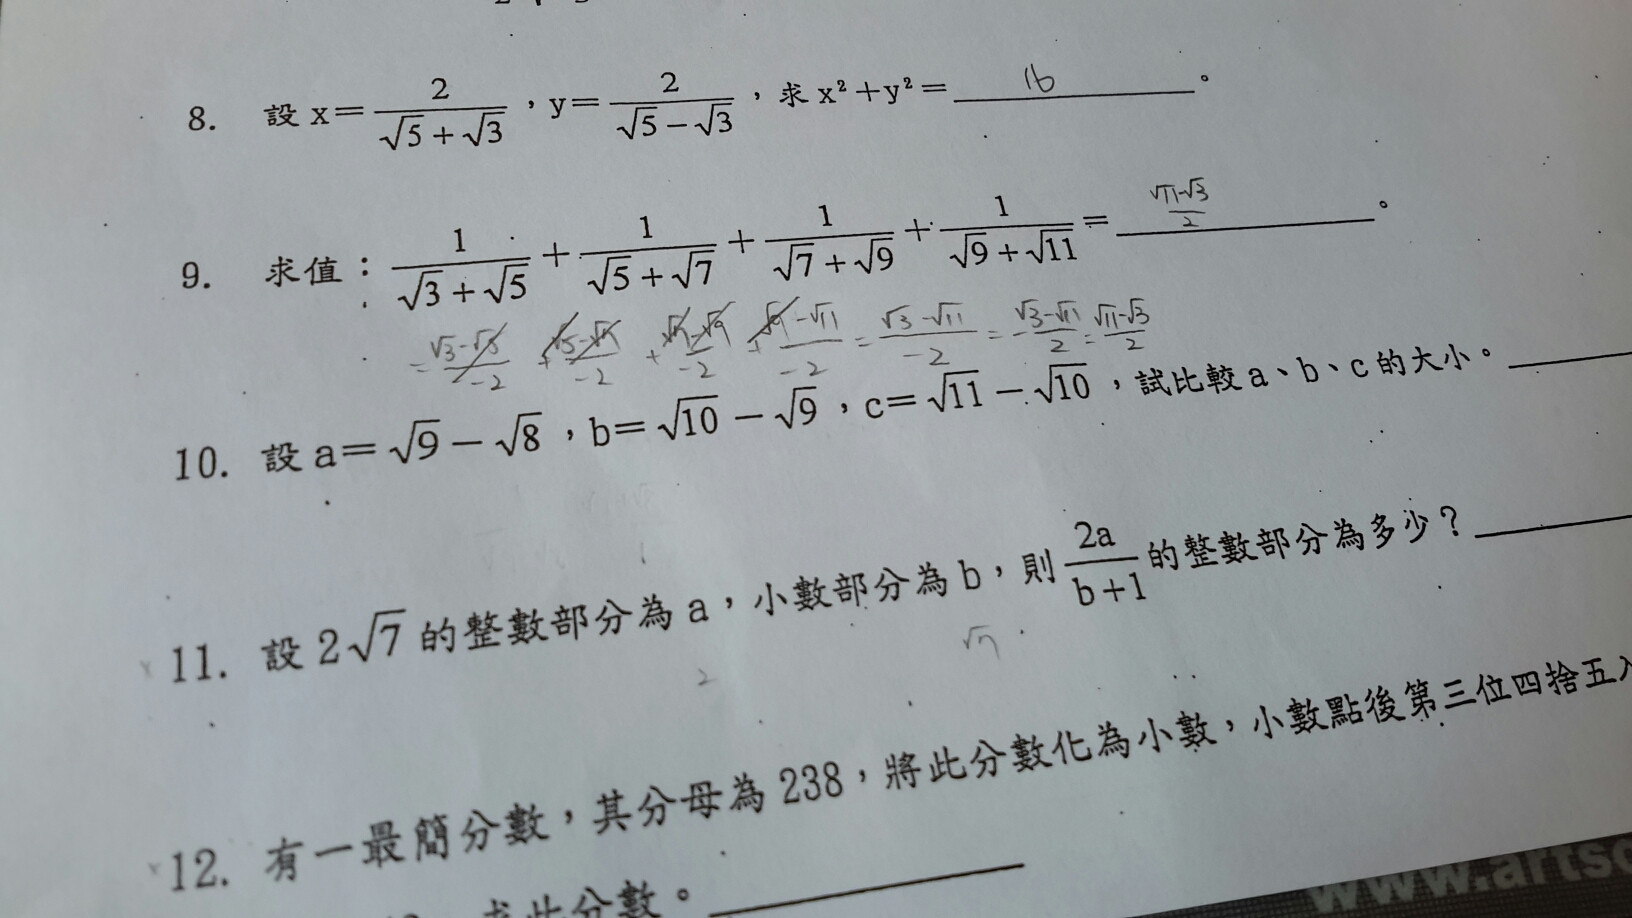 8. 設 x=2/(√5+√3)，y=2/(√5−√3)，求 x²+y²= 16 。
9. 求值：1/(√3+√5)+1/(√5+√7)+1/(√7+√9)+1/(√9+√11)= (√11-√3)/2 。
= (√3-√5)/-2 + (√5-√7)/-2 + (√7-√9)/-2 + (√9-√11)/-2 = (√3-√11)/-2 = -(√3-√11)/2 = (√11-√3)/2
10. 設 a=√9−√8，b=√10−√9，c=√11−√10，試比較 a、b、c 的大小。
11. 設 2√7 的整數部分為 a，小數部分為 b，則 2a/(b+1) 的整數部分為多少？
2 √7
12. 有一最簡分數，其分母為 238，將此分數化為小數，小數點後第三位四捨五入
求此分數。
www.arts